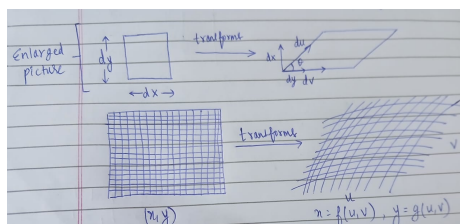 Enlarged picture
dy
dx
transforms
dx
du
θ
dy
dv
transforms
(x, y)
u
v
x = f(u,v) , y = g(u,v)